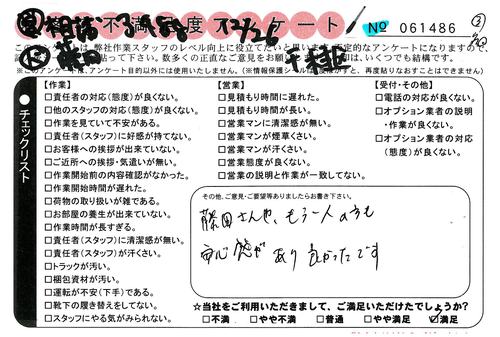 不満足度アンケート
12/26
№ 061486
このアンケートは、弊社作業スタッフのレベル向上に役立てたいと思います。否定的なアンケートになりますので、
下さい。数多くの正直なご意見をお願い
は、いくつでも結構です。
※このアンケートは、アンケート目的以外には使用いたしません。(※情報保護シール
再度貼りなおすことはできません)
●チェックリスト
【作業】
□責任者の対応(態度)が良くない。
□他のスタッフの対応(態度)が良くない。
□作業を見ていて不安がある。
□責任者(スタッフ)に好感が持てない。
□お客様への挨拶が出来ていない。
□ご近所への挨拶・気遣いが無い。
□作業開始前の内容確認がなかった。
□作業開始時間が遅れた。
□荷物の取り扱いが雑である。
□お部屋の養生が出来ていない。
□作業時間が長すぎる。
□責任者(スタッフ)に清潔感が無い。
□責任者(スタッフ)が汗くさい。
□トラックが汚い。
□梱包資材が汚い。
□運転が不安(下手)である。
□靴下の履き替えをしてない。
□スタッフにやる気がみられない。
【営業】
□見積もり時間に遅れた。
□見積もり時間が長い。
□営業マンに清潔感が無い。
□営業マンが煙草くさい。
□営業マンが汗くさい。
□営業態度が良くない。
□営業の説明と作業が一致してない。
【受付・その他】
□電話の対応が良くない。
□オプション業者の説明
・作業が良くない。
□オプション業者の対応
(態度)が良くない。
その他、ご意見・ご要望等ありましたらお書き下さい。
藤田さんや、もう一人の方も
安心感があり良かったです
☆当社をご利用いただきまして、ご満足いただけたでしょうか?
□不満 □やや不満 □普通 □やや満足 ☑満足